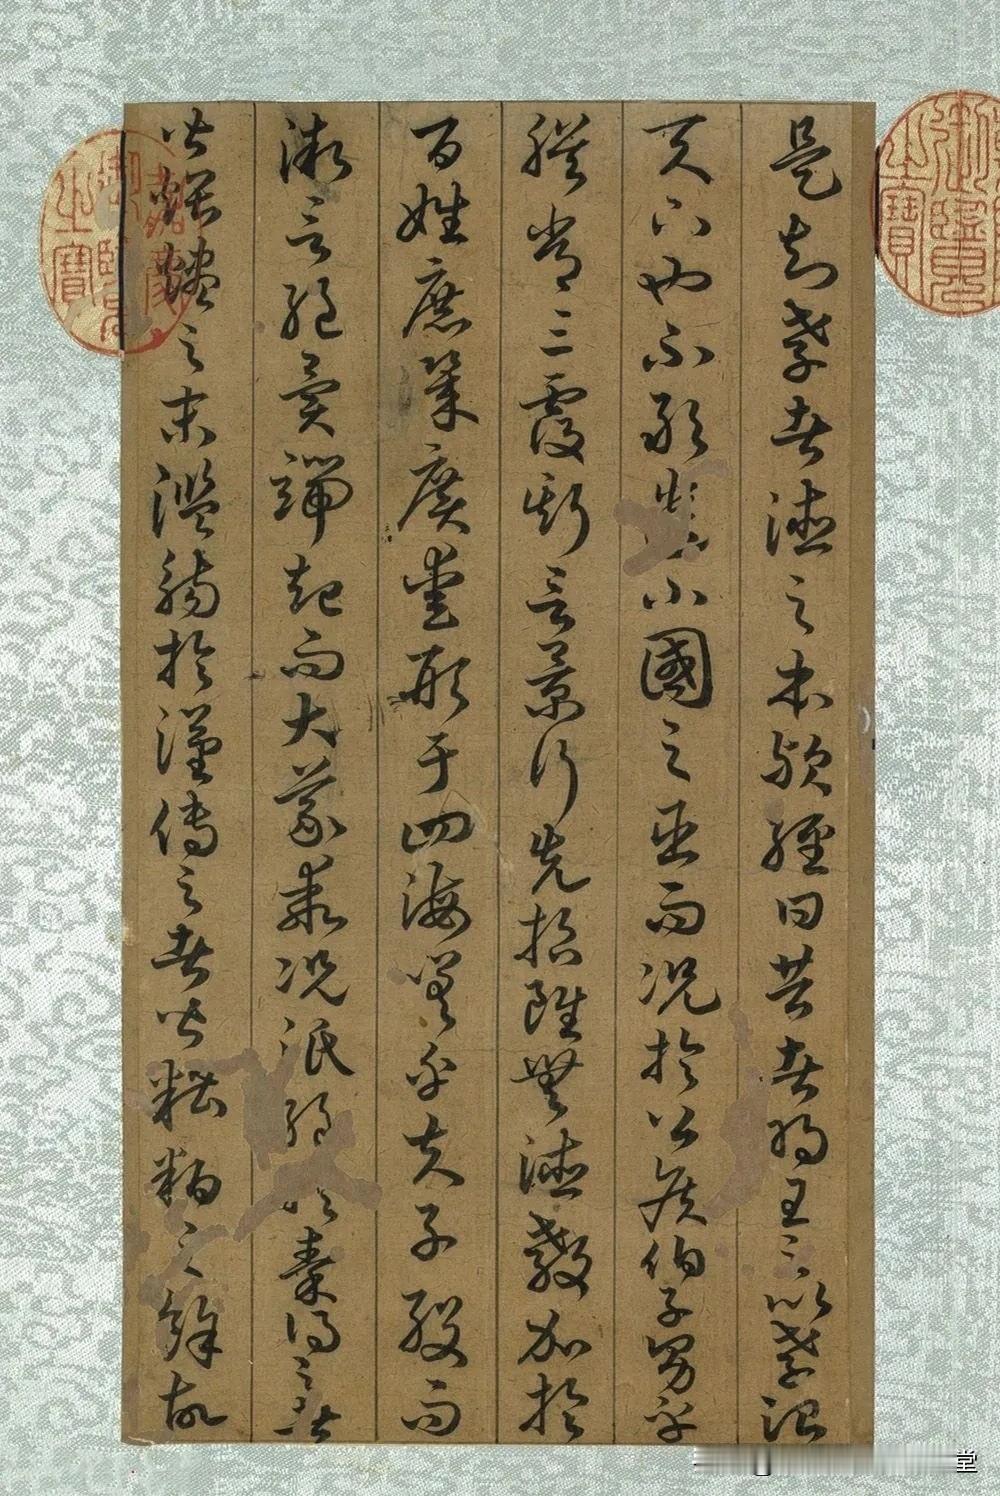 是知孝者德之本歟經曰昔者明王之以孝理
天下也不敢遺小國之臣而況於公侯伯子男乎
朕嘗三復斯言景行先哲雖無德教加於
百姓庶幾廣愛形于四海嗟乎夫子歿而
微言絕異端起而大義乖況泯絕於秦得之者
皆煨燼之末濫觴於漢傳之者皆糟粕之餘故
御覽之寶
嘉慶御覽之寶
堂